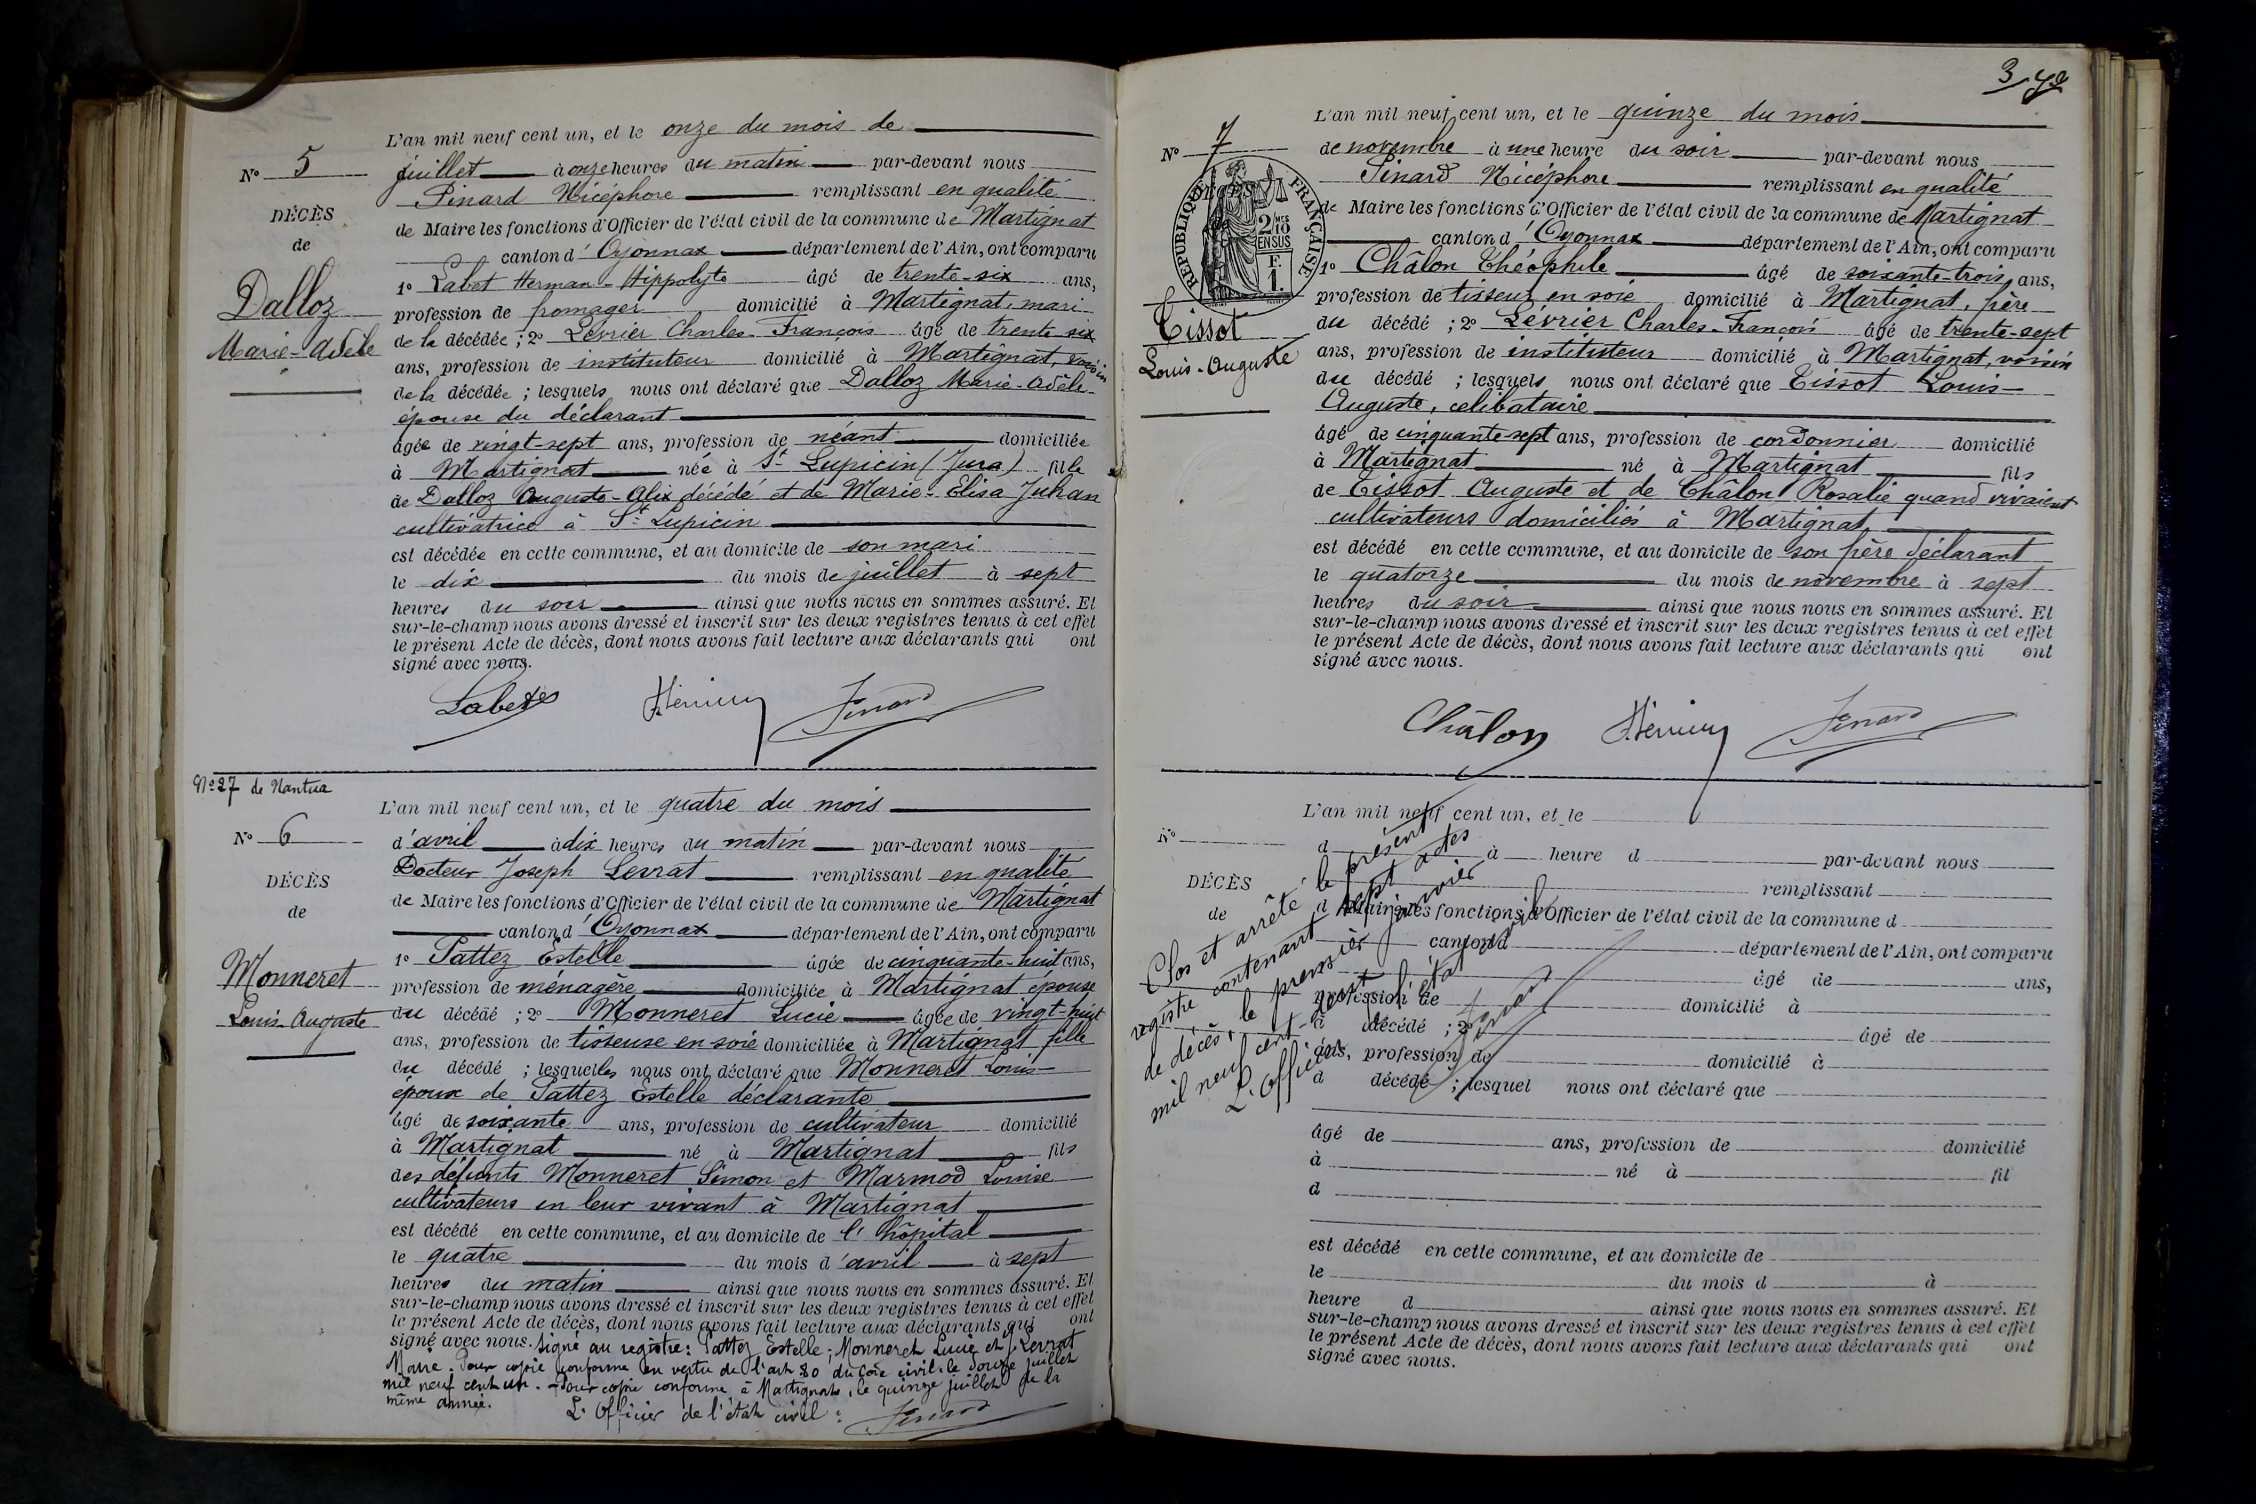 L'an mil neuf cent un, et le onze du mois de
N° 5
juillet à onze heures du matin par-devant nous
Pinard Nicéphore remplissant en qualité
DÉCÈS
de
de Maire les fonctions d'Officier de l'état civil de la commune de Martignat
canton d'Oyonnax département de l'Ain, ont comparu
Dalloz
Marie-Adèle
1° Labet Herman-Hippolyte âgé de trente-six ans,
profession de fromager domicilié à Martignat, mari
de la décédée ; 2° Lévrier Charles-François âgé de trente six
ans, profession de instituteur domicilié à Martignat, voisin
de la décédée ; lesquels nous ont déclaré que Dalloz Marie-Adèle
épouse du déclarant
âgée de vingt-sept ans, profession de néant domiciliée
à Martignat née à St Lupicin (Jura) fille
de Dalloz Auguste-Alix décédé et de Marie-Elisa Juhan
cultivatrice à St Lupicin
est décédée en cette commune, et au domicile de son mari
le dix du mois de juillet à sept
heures du soir ainsi que nous nous en sommes assuré. Et
sur-le-champ nous avons dressé et inscrit sur les deux registres tenus à cet effet
le présent Acte de décès, dont nous avons fait lecture aux déclarants qui ont
signé avec nous.
Labet Pinard
N° 27 de Nantua
L'an mil neuf cent un, et le quatre du mois
N° 6
d'avril à dix heures du matin par-devant nous
Docteur Joseph Levrat remplissant en qualité
DÉCÈS
de
de Maire les fonctions d'Officier de l'état civil de la commune de Martignat
canton d'Oyonnax département de l'Ain, ont comparu
Monneret
Louis-Auguste
1° Pattez Estelle âgée de cinquante-huit ans,
profession de ménagère domiciliée à Martignat épouse
du décédé ; 2° Monneret Lucie âgée de vingt-huit
ans, profession de tisseuse en soie domiciliée à Martignat fille
du décédé ; lesquelles nous ont déclaré que Monneret Louis-
époux de Pattez Estelle déclarante
âgé de soixante ans, profession de cultivateur domicilié
à Martignat né à Martignat fils
des défunts Monneret Simon et Marmod Louise
cultivateurs en leur vivant à Martignat
est décédé en cette commune, et au domicile de l'hôpital
le quatre du mois d'avril à sept
heures du matin ainsi que nous nous en sommes assuré. Et
sur-le-champ nous avons dressé et inscrit sur les deux registres tenus à cet effet
le présent Acte de décès, dont nous avons fait lecture aux déclarants qui ont
signé avec nous. Signé au registre : Pattez Estelle ; Monneret Lucie et J. Levrat
Maire. Pour copie conforme en vertu de l'art 80 du Code civil le douze juillet
mil neuf cent un. Pour copie conforme à Martignat, le quinze juillet de la
même année.
L'Officier de l'état civil : Pinard
3
L'an mil neuf cent un, et le quinze du mois
N° 7
de novembre à une heure du soir par-devant nous
Pinard Nicéphore remplissant en qualité
RÉPUBLIQUE FRANÇAISE
2/10 MES
EN SUS
F.
1.
de Maire les fonctions d'Officier de l'état civil de la commune de Martignat
canton d'Oyonnax département de l'Ain, ont comparu
Tissot
Louis-Auguste
1° Châlon Théophile âgé de soixante-trois ans,
profession de tisseur en soie domicilié à Martignat, frère
du décédé ; 2° Lévrier Charles-François âgé de trente-sept
ans, profession de instituteur domicilié à Martignat, voisin
du décédé ; lesquels nous ont déclaré que Tissot Louis-
Auguste, célibataire
âgé de cinquante-sept ans, profession de cordonnier domicilié
à Martignat né à Martignat fils
de Tissot Auguste et de Châlon Rosalie quand vivaient
cultivateurs domiciliés à Martignat
est décédé en cette commune, et au domicile de son frère déclarant
le quatorze du mois de novembre à sept
heures du soir ainsi que nous nous en sommes assuré. Et
sur-le-champ nous avons dressé et inscrit sur les deux registres tenus à cet effet
le présent Acte de décès, dont nous avons fait lecture aux déclarants qui ont
signé avec nous.
Châlon Pinard
L'an mil neuf cent un, et le
N°
d à heure d par-devant nous
remplissant
DÉCÈS
de
d Maire les fonctions d'Officier de l'état civil de la commune d
canton d département de l'Ain, ont comparu
âgé de ans,
profession de domicilié à
d décédé ; 2° âgé de
ans, profession de domicilié à
d décédé ; lesquel nous ont déclaré que
âgé de ans, profession de domicilié
à né à fil
d
est décédé en cette commune, et au domicile de
le du mois d à
heure d ainsi que nous nous en sommes assuré. Et
sur-le-champ nous avons dressé et inscrit sur les deux registres tenus à cet effet
le présent Acte de décès, dont nous avons fait lecture aux déclarants qui ont
signé avec nous.
Clos et arrêté le présent
registre contenant sept actes
de décès, le premier janvier
mil neuf cent-deux
L'Officier de l'état civil
Pinard